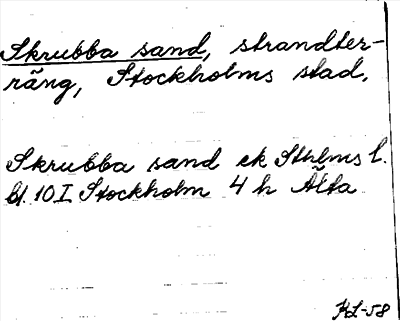 Skrubba sand, strandter-
räng, Stockholms stad.
Skrubba sand ek Sthlms l.
bl. 10 I Stockholm 4 h Älta
KL-58